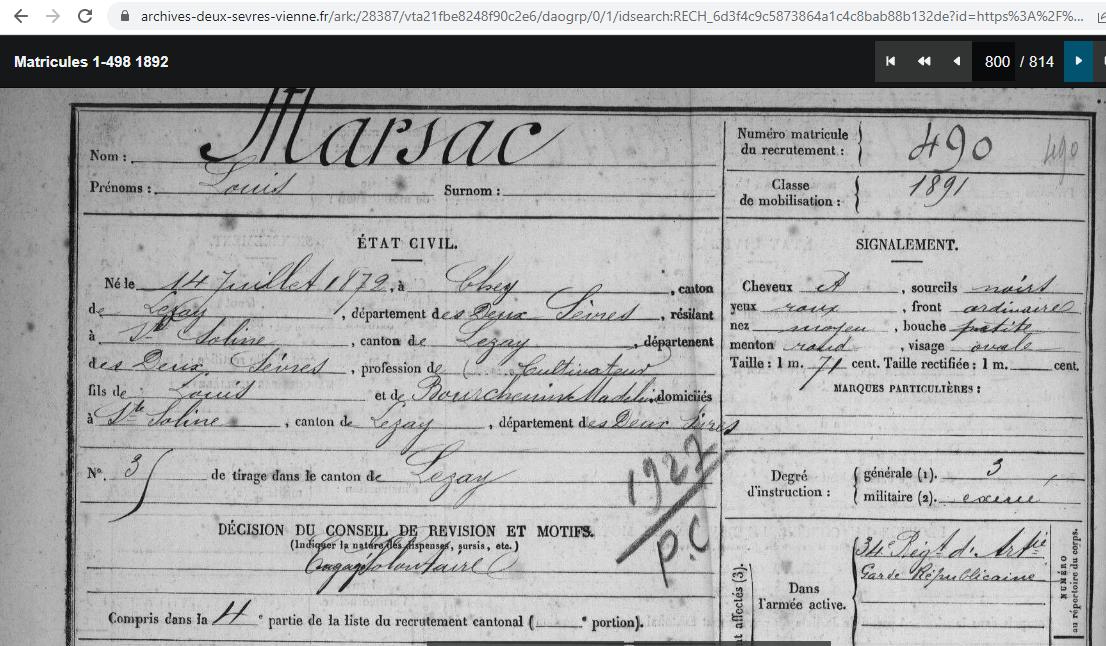 archives-deux-sevres-vienne.fr/ark:/28387/vta21fbe8248f90c2e6/daogrp/0/1/idsearch:RECH_6d3f4c9c5873864a1c4c8bab88b132de?id=https%3A%2F%...
Matricules 1-498 1892
800 / 814
Nom : Marsac
Prénoms : Louis Surnom :
Numéro matricule du recrutement : 490 490
Classe de mobilisation : 1891
ÉTAT CIVIL.
Né le 14 Juillet 1872, à Chey, canton
de Lezay, département des Deux Sèvres, résidant
à Ste Soline, canton de Lezay, département
des Deux Sèvres, profession de Cultivateur
fils de Louis et de Bourchenin domiciliés
à Ste Soline, canton de Lezay, département des Deux Sèvres
N°. 3 de tirage dans le canton de Lezay
1927
P.C
DÉCISION DU CONSEIL DE REVISION ET MOTIFS.
(Indiquer la nature des dispenses, sursis, etc.)
Engagé Volontaire
Compris dans la 4e partie de la liste du recrutement cantonal ( e portion).
SIGNALEMENT.
Cheveux et, sourcils noirs
yeux roux, front ordinaire
nez moyen, bouche petite
menton rond, visage ovale
Taille : 1 m. 71 cent. Taille rectifiée : 1 m. cent.
MARQUES PARTICULIÈRES :
Degré d'instruction : générale (1). 3
militaire (2). exercé
Dans l'armée active. 34e Régt d'Artie
Garde Républicaine
NUMÉRO
au répertoire du corps.
t affectés (3).